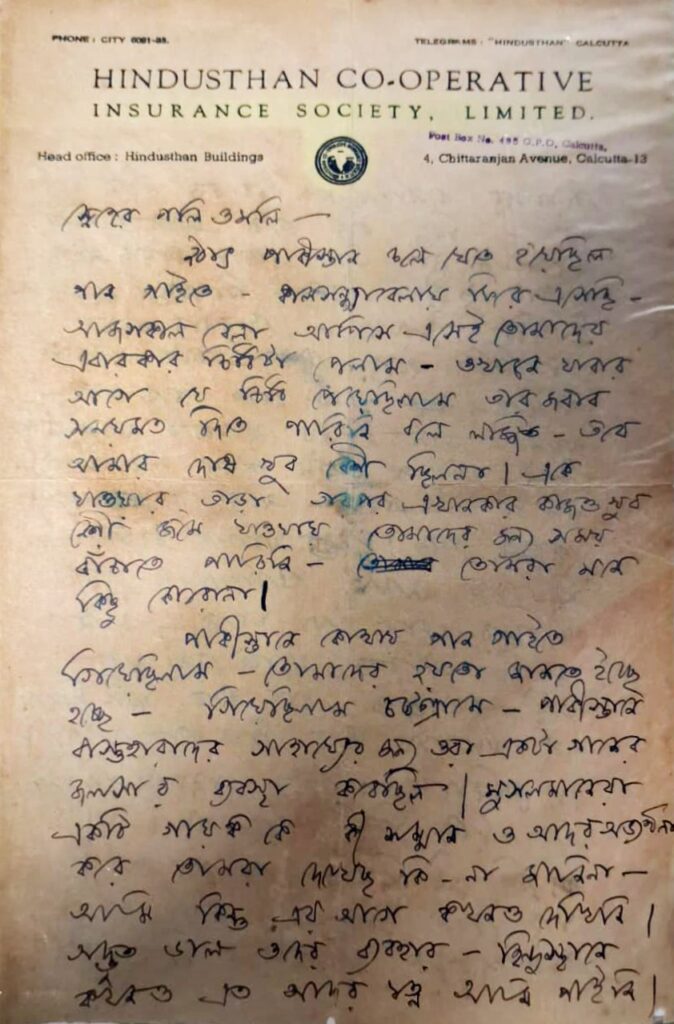 PHONE : CITY 6091-95.
TELEGRAMS : "HINDUSTHAN" CALCUTTA
HINDUSTHAN CO-OPERATIVE
INSURANCE SOCIETY, LIMITED.
Post Box No. 495 G.P.O, Calcutta,
Head office : Hindusthan Buildings
4, Chittaranjan Avenue, Calcutta-13
স্নেহের পলি ওমলি —
হঠাৎ পাকীস্তান চলে যেতে হয়েছিল
গান গাইতে - কালসন্ধ্যাবেলায় ফিরে এসেছি -
আজসকাল বেলা আপিসে এসেই তোমাদের
এবারকার চিঠিটা পেলাম - ওখানে যাবার
আগে যে চিঠি পেয়েছিলাম তার জবাব
সময়মত দিতে পারিনি বলে লজ্জিত - তবে
আমার দোষ খুব বেশী ছিলনা। একে
যাওয়ার তাড়া তারপর এখানকার কাজও খুব
বেশী জমে যাওয়ায় তোমাদের জন্য সময়
বাঁচাতে পারিনি - তোমরা মনে
কিছু কোরোনা।
পাকীস্তানে কোথায় গান গাইতে
গিয়েছিলাম - তোমাদের হয়তো জানতে ইচ্ছে
হচ্ছে - গিয়েছিলাম চট্টগ্রামে - পাকীস্তানে
বাস্তুহারাদের সাহায্যের জন্য ওরা একটা গানের
জলসার ব্যবস্থা করেছিল। মুসলমানেরা
একটি গায়ক কে কী সম্মান ও আদর অভ্যর্থনা
করে তোমরা দেখেছ কি - না জানিনা -
আমি কিন্তু এর আগে কখনও দেখিনি।
অদ্ভুত ভাল ওদের ব্যবহার - হিন্দুস্থানে
কখনও এত আদর যত্ন আমি পাইনি।